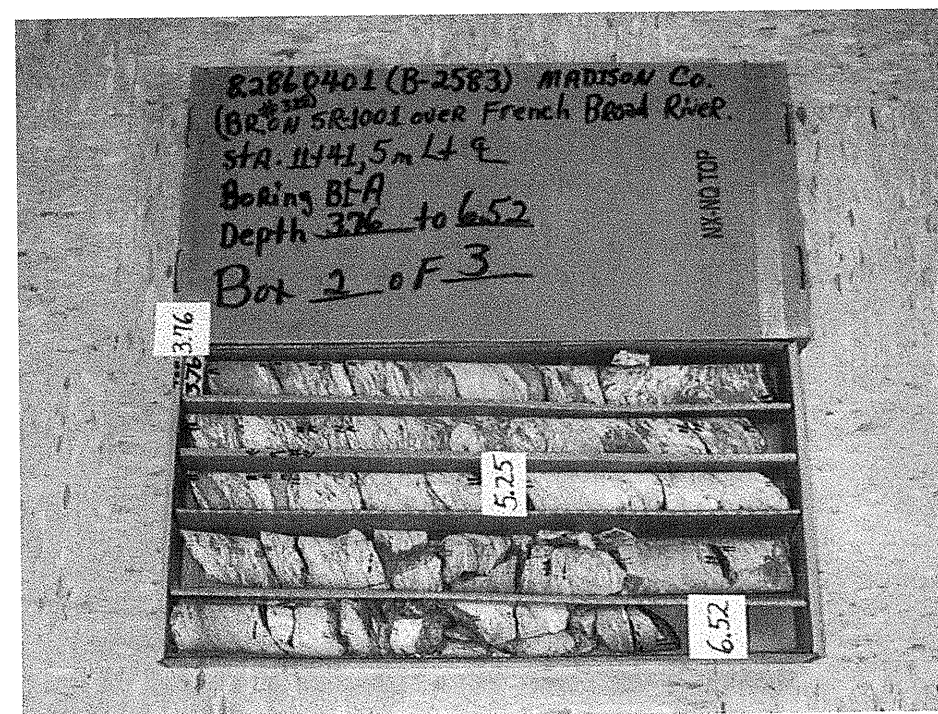 8.2860401 (B-2583) MADISON Co.
(BR.#328 ON SR-1001 over French Broad River.
StA. 11+41, 5m Lt ℄
BoRing B1-A
Depth 3.76 to 6.52
Box 2 oF 3
NX-NQ TOP
3.76
3.76
5.25
6.52